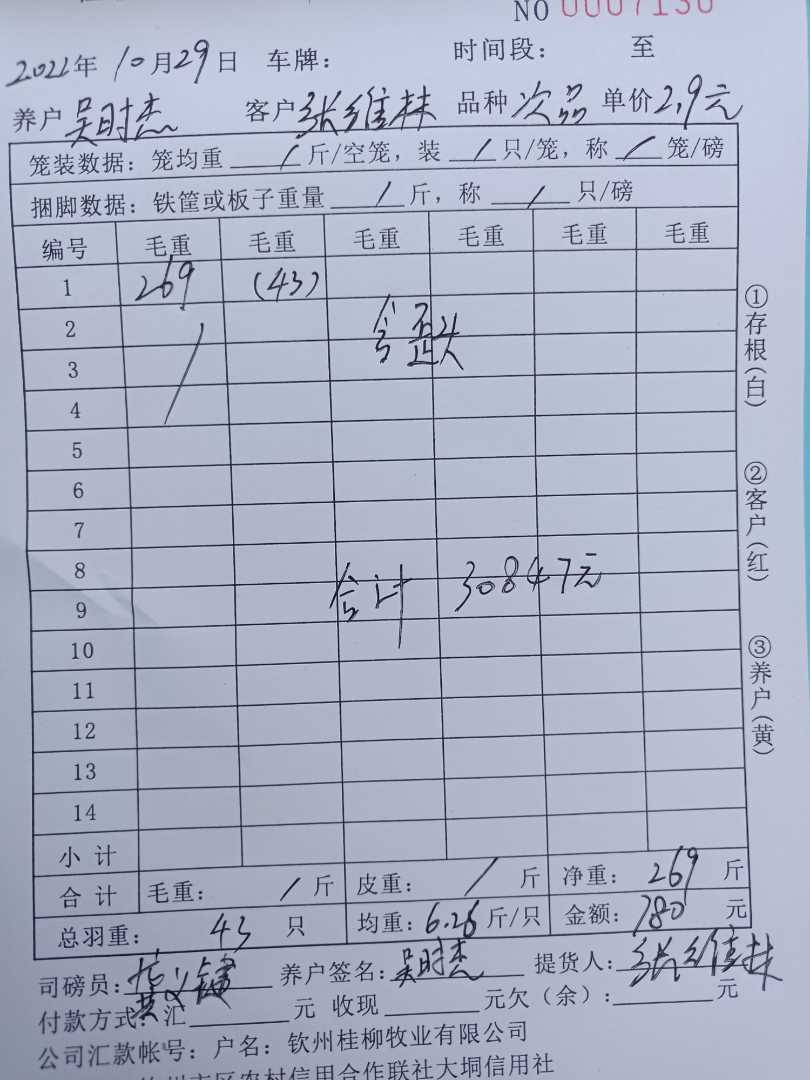 NO 0007130
2021年 10月29日 车牌： 时间段： 至
养户 吴时杰 客户 张维林 品种 次品 单价 2.9元
笼装数据：笼均重 / 斤/空笼，装 / 只/笼，称 / 笼/磅
捆脚数据：铁筐或板子重量 / 斤，称 / 只/磅
编号 毛重 毛重 毛重 毛重 毛重 毛重
1 269 (43)
2
3
4
5
6
7
8
合计 30847元
9
10
11
12
13
14
小计
合计 毛重： / 斤 皮重： / 斤 净重：269斤
总羽重：43只 均重：6.26斤/只 金额：780元
司磅员： 养户签名：吴时杰 提货人：张维林
付款方式：汇 元 收现 元欠（余）： 元
公司汇款帐号：户名：钦州桂柳牧业有限公司
农村信用合作联社大垌信用社
①存根(白)
②客户(红)
③养户(黄)